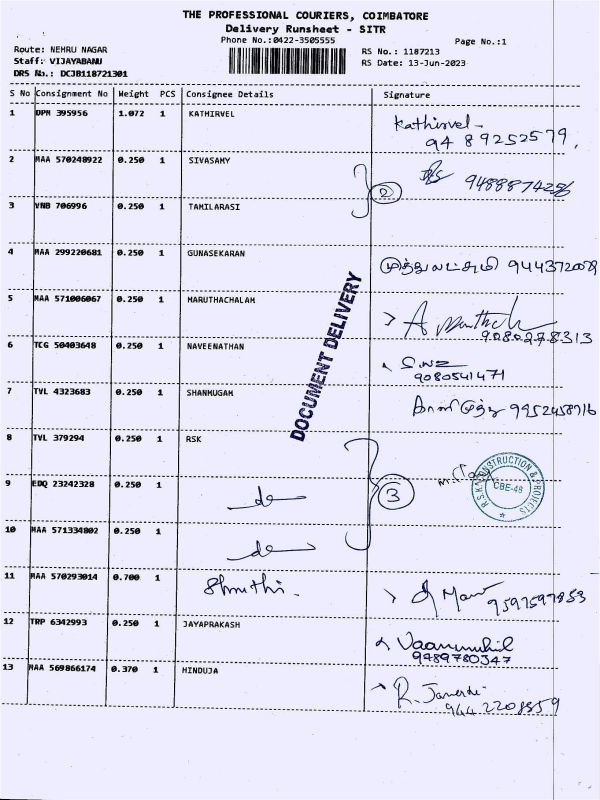 THE PROFESSIONAL COURIERS, COIMBATORE
Delivery Runsheet - SITR
Phone No.:0422-3505555
Page No.:1
Route: NEHRU NAGAR
Staff: VIJAYABANU
DRS No.: DCJB118721301
RS No.: 1187213
RS Date: 13-Jun-2023
S No Consignment No Weight PCS Consignee Details Signature
1 DPM 395956 1.072 1 KATHIRVEL Kathirvel-
94 89252579,
2 MAA 570248922 0.250 1 SIVASAMY
2
3 VNB 706996 0.250 1 TAMILARASI
4 MAA 299220681 0.250 1 GUNASEKARAN முத்துலட்சுமி
5 MAA 571006067 0.250 1 MARUTHACHALAM
9080278313
6 TCG 50403648 0.250 1 NAVEENATHAN
9080541471
7 TVL 4323683 0.250 1 SHANMUGAM
DOCUMENT DELIVERY
8 TVL 379294 0.250 1 RSK
R.S.K. CONSTRUCTION & PROJECTS
CBE-48
9 EDQ 23242328 0.250 1 do
3
10 MAA 571334802 0.250 1 do
11 MAA 570293014 0.700 1 Shruthi.
9597597853
12 TRP 6342993 0.250 1 JAYAPRAKASH
9489780347
13 MAA 569866174 0.370 1 HINDUJA